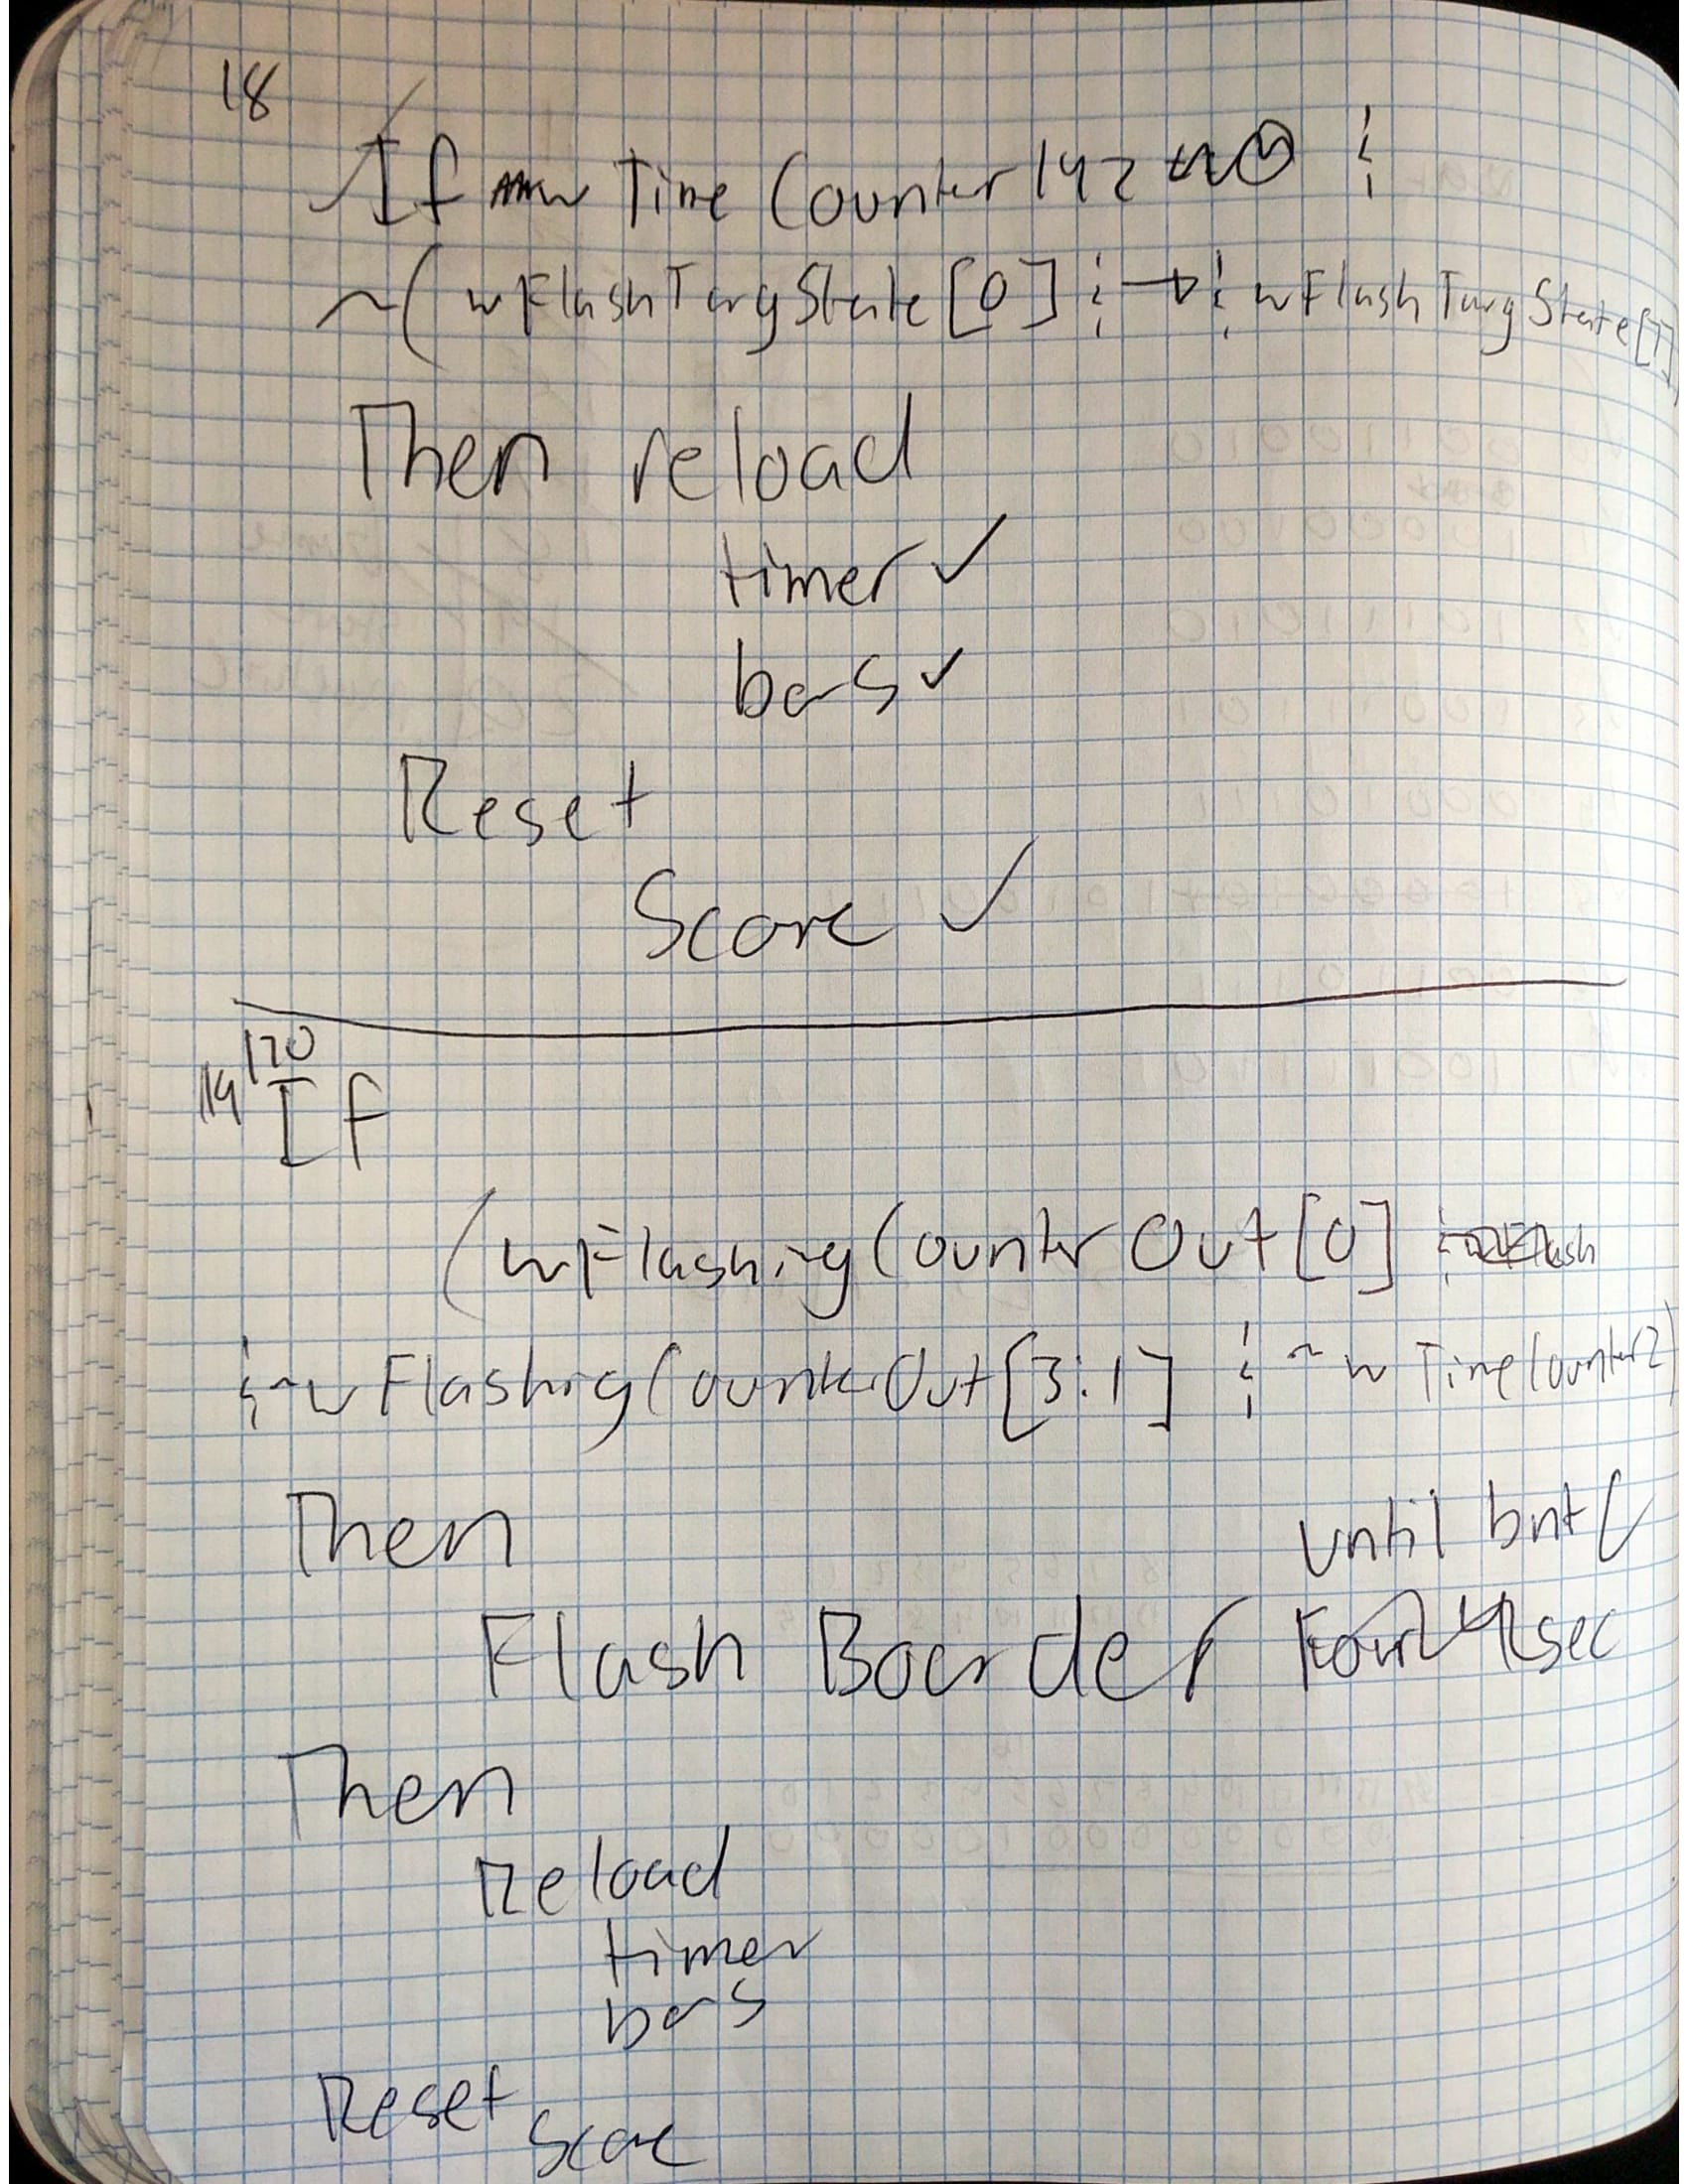 18
If w Time Counter 142
~( wFlashTargState[0] ¦ ¦ wFlashTargState[1])
Then reload
timer ✓
bars ✓
Reset
Score ✓
19 120
If
(wFlashingCounterOut[0]
¦ ~wFlashingCounterOut[3:1] ¦ ~wTimeCounter2)
Then
until bntC
Flash Boarder sec
Then
Reload
timer
bars
Reset
Score